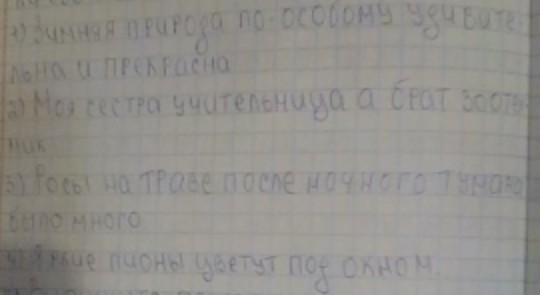 1) Зимняя природа по-особому удивите-
льна и прекрасна
2) Моя сестра учительница а брат зооте
ник
3) Росы на траве после ночного тумана
было много
4) Яркие пионы цветут под окном.